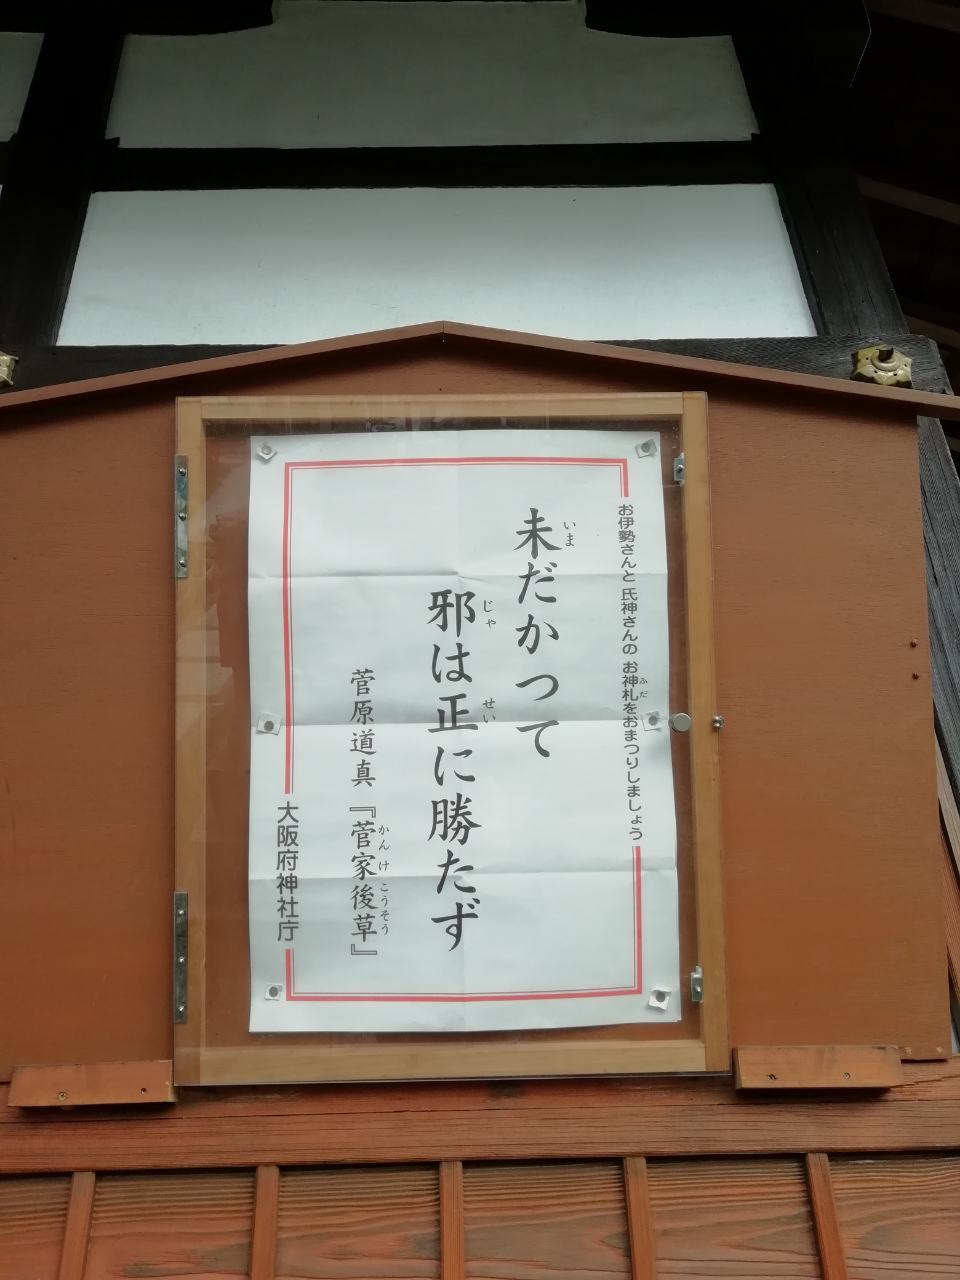 お伊勢さんと 氏神さんの お神札をおまつりしましょう
ふだ
未だかつて
いま
邪は正に勝たず
じゃ
せい
菅原道真『菅家後草』
かんけこうそう
大阪府神社庁